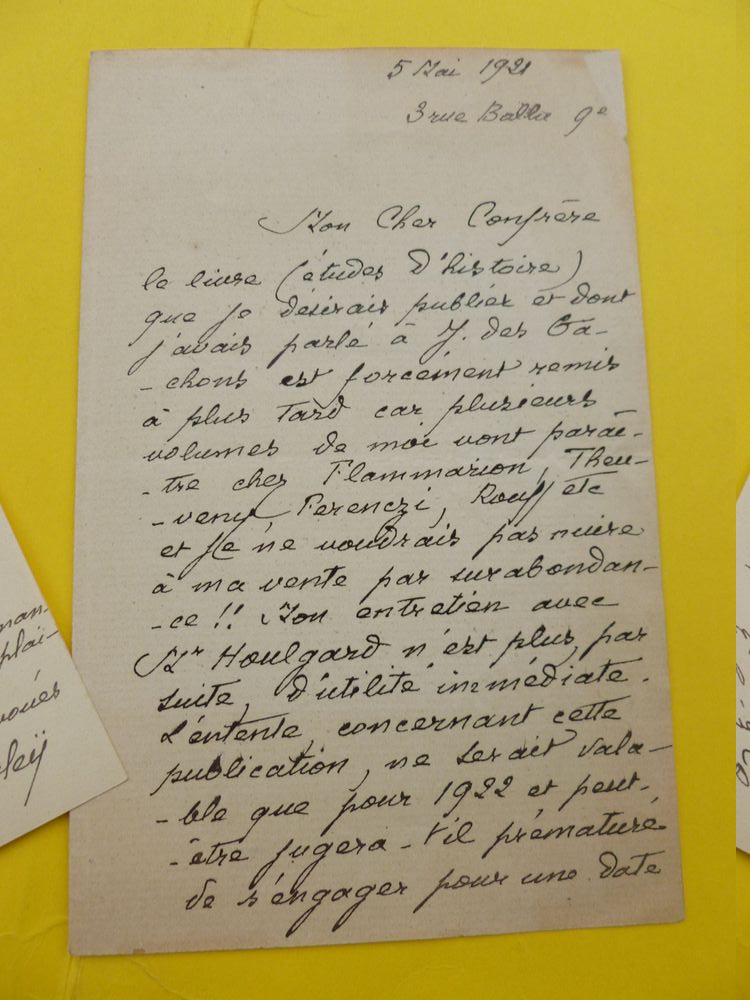 5 Mai 1921
3 rue Ballu 9e
Mon Cher Confrère
le livre (études d'histoire)
que je désirais publier et dont
j'avais parlé à J. des Ga-
-chons est forcément remis
à plus tard car plusieurs
volumes de moi vont paraî-
-tre chez Flammarion, Theu-
-veny, Ferenczi, Rouff etc
et je ne voudrais pas nuire
à ma vente par surabondan-
-ce !! Mon entretien avec
Mr Houlgard n'est plus, par
suite, d'utilité immédiate.
L'entente, concernant cette
publication, ne serait vala-
-ble que pour 1922 et peut-
-être jugera-t'il prématuré
de s'engager pour une date
man-
plai-
voués
leÿ